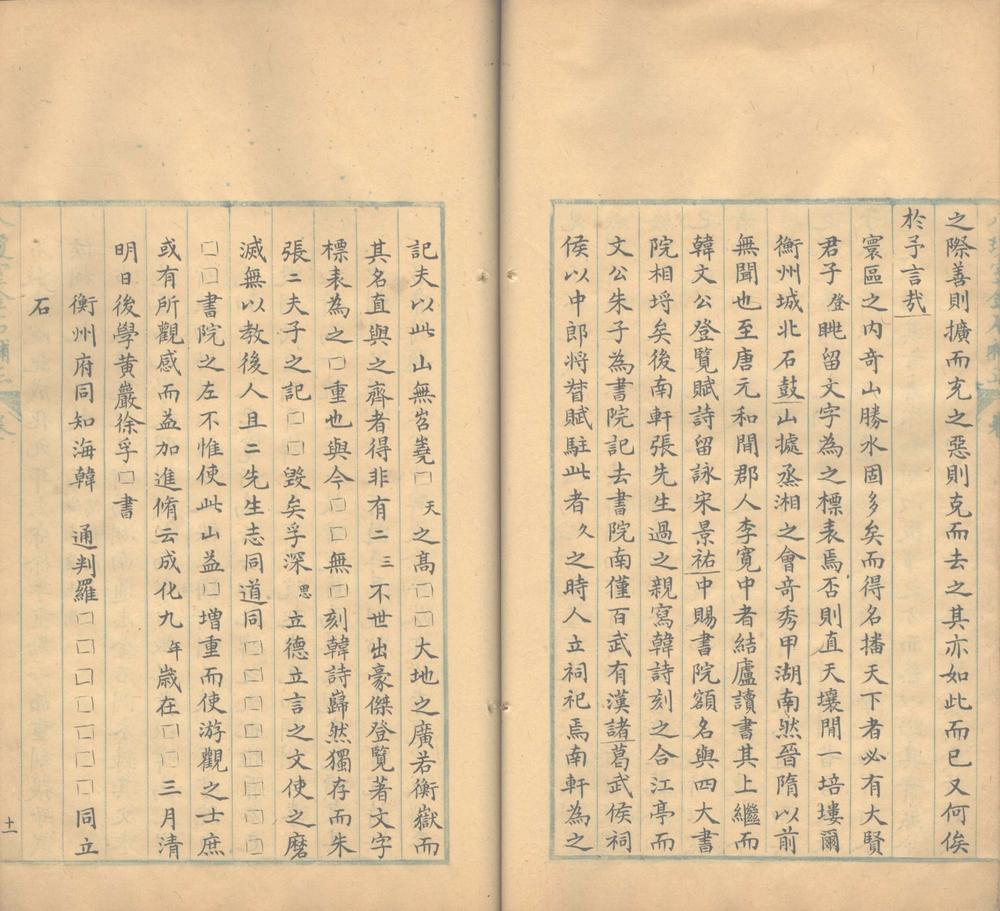 之際善則擴而充之惡則克而去之其亦如此而已又何俟
於予言㢤
寰區之內奇山勝水固多矣而得名播天下者必有大賢
君子登眺留文字為之標表焉否則直天壤閒一培塿爾
衡州城北石鼓山據烝湘之會奇秀甲湖南然晉隋以前
無聞也至唐元和閒郡人李寬中者結廬讀書其上繼而
韓文公登覽賦詩留詠宋景祐中賜書院額名與四大書
院相埒矣後南軒張先生過之親寫韓詩刻之合江亭而
文公朱子為書院記去書院南僅百武有漢諸葛武侯祠
侯以中郎將督賦駐此者久之時人立祠祀焉南軒為之
記夫以此山無岧嶤□天之髙□□大地之廣若衡嶽而
其名直與之齊者得非有二三不世出豪傑登覽著文字
標表為之□重也與今□□無□刻韓詩巋然獨存而朱
張二夫子之記□□毀矣孚深思立德立言之文使之磨
滅無以教後人且二先生志同道同□□□□□□□□
□□書院之左不惟使此山益□增重而使游觀之士庶
或有所觀感而益加進脩云成化九年歲在□□三月清
明日後學黃巖徐孚□書
衡州府同知海韓　通判羅□□□□□□□同立
石
十一